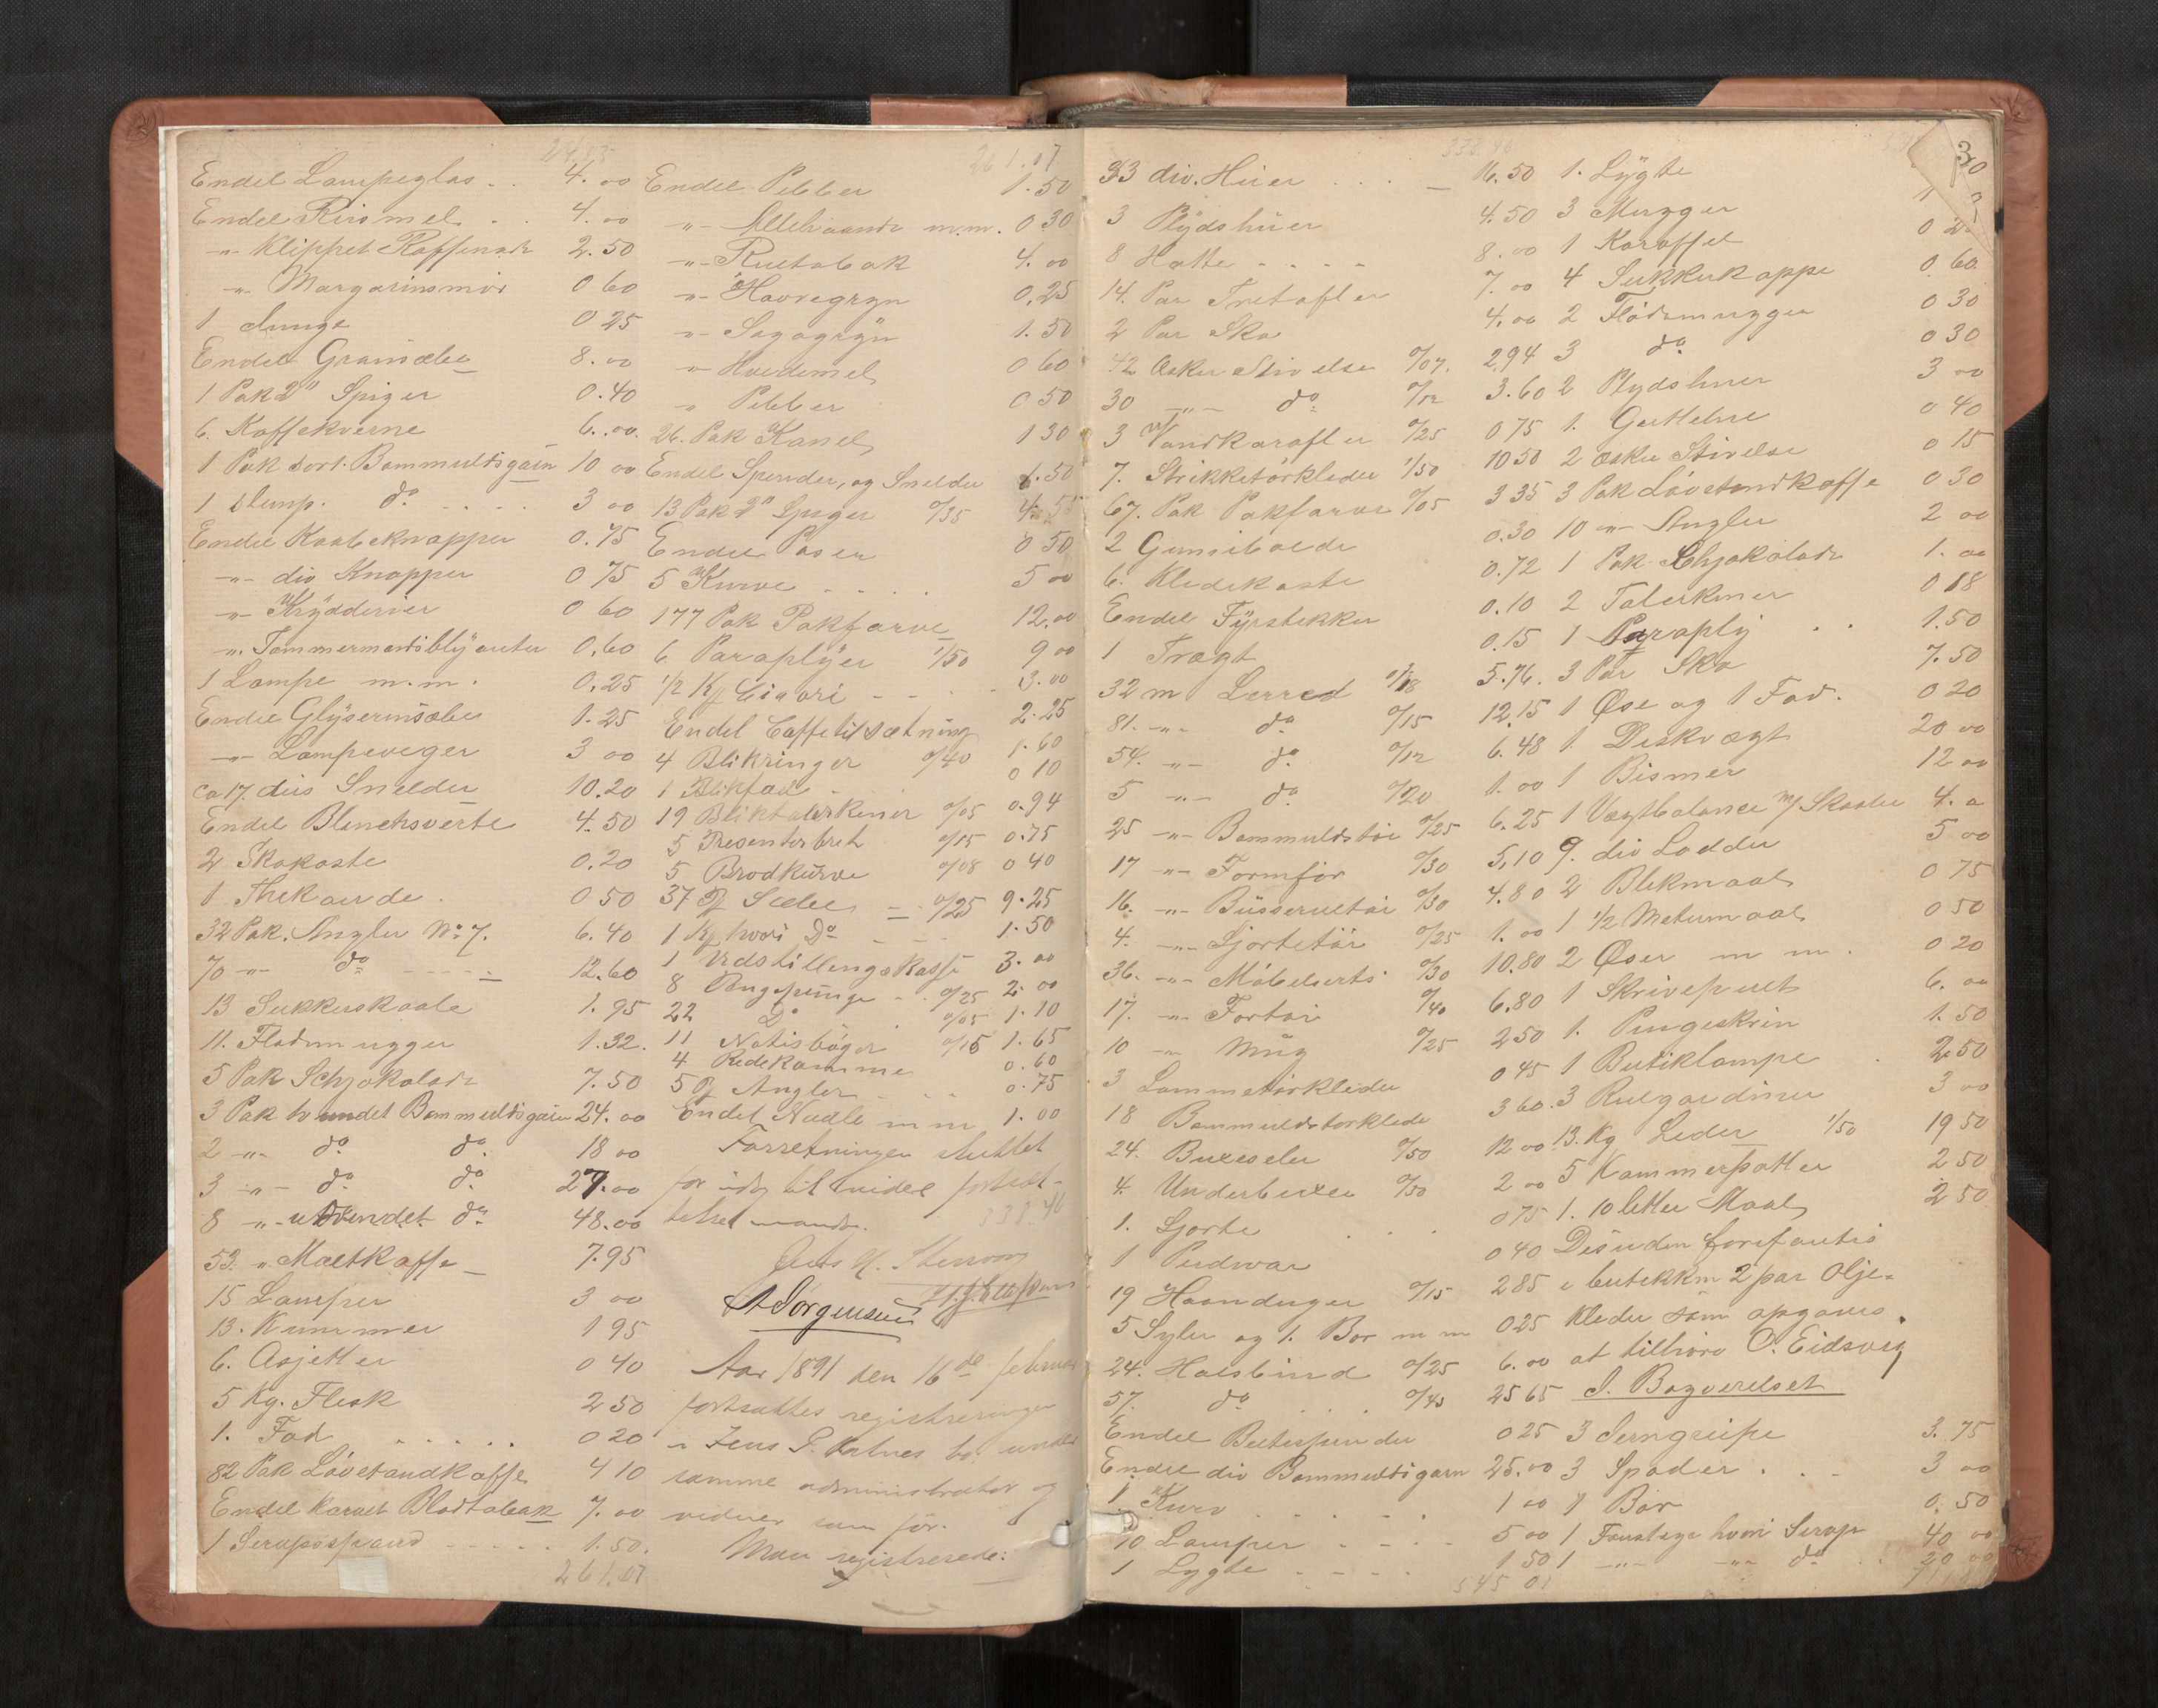 Endel Lampeglas . . 4.00
Endel Rismel . . 4.00
-"- Klippet Raffenade 2.50
-"- Margarinsmör 0 60
1 0 25
Endel Grønsæbe 8.00
1 Pak 2" Spiger 0.40
6. Kaffekverne 6.00.
1 Pak sort. Bommuldsgarn 10 00
1 slump. do . . . . 3 00
Endel Kaabeknapper 0.75
-"- div Knapper 0 75
-"- Krydderier 0 60
-"- Tømmermandsblyanter 0.60
1 Lampe m.m. 0.25
Endel Glyserinsæbe 1.25
-"- Lampeveger 3 00
ca 17. dus Snelder 10.20
Endel Blanchsverte 4.50
2 Skokoste 0.20
1 Thekande . 0 50
32 Pak. Angler No 7. 6.40
70 -"- do - - - - - 12.60
13 Sukkerskaale 1.95
11. Flødemugger 1.32.
5 Pak Schjokolade 7.50
3 Pak tvundet Bommuldsgarn 24.00
2 -"- do do 18 00
3 -"- do do 27.00
8 -"- utvundet do 48.00
53. " Maltkaffe 7.95
15 Lamper 3 00
13. Kummer 1 95
6. Asjetter 0 40
5 Kg. Flesk 2 50
1. Fad . . . . . 0 20
82 Pak Løvetandkaffe 4 10
Endel karvet Bladtobak 7.00
1 Serupsspand - - - - - 1.50.
261.07
261.07
Endel Pebber 1.50
-"- Allehaande m.m. 0 30
-"- Rultobak 4.00
-"- Havregryn 0.25
-"- Sagogryn 1.50
-"- Hvedemel 0 60
" Pebber 0 50
26. Pak Kanel 1 30
Endel Spender, og Snelder 1.50
13 Pak 2" Spiger 0/35 4.55
Endel Poser 0 50
5 Kurve - - - . 5 00
177 Pak Pakfarve 12.00
6 Paraplyer 1/50 9 00
1/2 Kg Cicori - - . - 3.00
Endel Caffetilsætning 2.25
4 Blikringer 0/40 1.60
1 Blikfad - 0 10
19 Bliktalerkener 0/05 0.94
5 Presenterbret 0/15 0.75
5 Brødkurve 0/08 0 40
37 Sæbe - - 0/25 9.25
1 Kg hvori Do - - - 1.50
1 Udstillingskasse 3.00
8 Pengepunge - . 0/25 2.00
22 Do . 0/05 1.10
11 Notisbøger 0/15 1.65
4 Redekamme 0.60
5 Angler - . . . 0.75
Endel Naale m m 1.00
Forretningen sluttet
for idag til videre fortsæt-
telse mandag.
338.46
Jens
A Sørgensen
Aar 1891 den 16de februar
fortsattes registreringen
i Jens P. bo under
samme administrator og
vidner som för.
Man registrerede:
338.46
33 div. Huer . . . - 16.50
3 Plydshuer 4.50
8 Hatte - - - - 8.00
14. Par Tretøfler 7.00
2 Par Sko 4.00
42 Æsker Stivelse 0/07. 2.94
30 -"- do 0/12 3.60
3 Vandkarafler 0/25 0 75
7. Strikketørkleder 1/50 10 50
67. Pak Pakfarve 0/05 3 35
2 Gumibolde 0.30
6. Kledekoste 0.72
Endel Fyrstikker 0.10
1 Tragt 0.15
32 m Lerred 0/18 5.76.
81. -"- do 0/15 12.15
54. -"- do 0/12 6.48
5 -"- do 0/20 1.00
25 -"- Bommuldstøi 0/25 6.25
17 -"- Formfør 0/30 5.10
16. -"- Busserultøi 0/30 4.80
4. -"- Sjortetøi 0/25 1.00
36. -"- Møbelserts 0/30 10.80
17. -"- Fortøi 0/40 6.80
10 -"- Mug 0/25 2 50
3 Lommetørkleder 0 45
18 Bommuldstørklede 3 60.
24. Buxeseler 0/50 12 00
4. Underbuxer 0/50 2 00
1. Sjorte . . . 0 75
1 Pudvar 0 40
19 Haanduger 0/15 2 85
5 Syler og 1. Bor m m 0 25
24. Halsbind 0/25 6.00
57. do . . . . 0/45 25 65
Endel Bulespender 0 25
Endel div Bommuldsgarn 25.00
1. Kurv . . . . . . 1 00
10 Lamper - - - - 5 00
1 Lygte - - - - 1 50
545 01
30
1. Lygte
3 Mugger
1 Karaffel 0 2
4 Sukkerkoppe 0.60
2 Flødemugger 0 30
3 do 0 30
2 Plydshuer 3 00
1. Guttehue 0 40
2 æsker Stivelse 0 15
3 Pak Løvetandkaffe 0 30
10 -"- Angler 2 00
1 Pak Chjokolade 1.00
2 Talerkener 0 18
1 Paraply . . 1.50
3 Par Sko 7.50
1 Øse og 1 Fad. 0 20
1. Diskvægt 20 00
1 Bismer 12 00
1 Vægtbalance m/ Skaaler 4.00
9. div Lodder 5 00
2 Blikmaal 0 75
1 1/2 Metermaal 0 50
2 Øser m m . 0 20
1 Skrivepult 6.00
1. Pengeskrin 1.50
1 Butiklampe . 2.50
3 Rulgardiner 3 00
13. Kg Leder 1/50 19 50
5 Kammerpotter 2 50
1. 10 litter Maal 2 50
Desuden forefantes
i butikken 2 par Olje-
kleder som opgaves
at tilhøre O. Eidsvig
I. Bagværelset
3 Jerngreipe 3.75
3 Spader . . - 3 00
1 Bør 0.50
1 Foustage hvori Serup 40 00
1 -"- -"- do . . 20 00